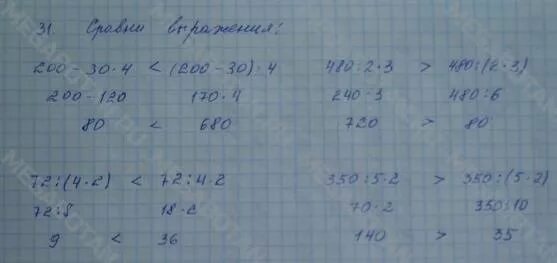 31. Сравни выражения:
200 - 30 · 4 < (200 - 30) · 4
200 - 120 170 · 4
80 < 680
480 : 2 · 3 > 480 : (2 · 3)
240 · 3 480 : 6
720 > 80
72 : (4 · 2) < 72 : 4 · 2
72 : 8 18 · 2
9 < 36
350 : 5 · 2 > 350 : (5 · 2)
70 · 2 350 : 10
140 > 35